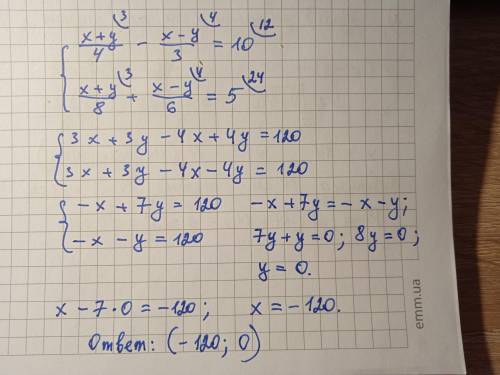 { (x+y)/4 ⌣3 − (x−y)/3 ⌣4 = 10 ⌣12
(x+y)/8 ⌣3 + (x−y)/6 ⌣4 = 5 ⌣24
{ 3x + 3y − 4x + 4y = 120
3x + 3y − 4x − 4y = 120
{ −x + 7y = 120 −x + 7y = −x − y;
−x − y = 120 7y + y = 0; 8y = 0;
y = 0.
x − 7 · 0 = −120; x = −120.
Ответ: (−120; 0)
emm.ua